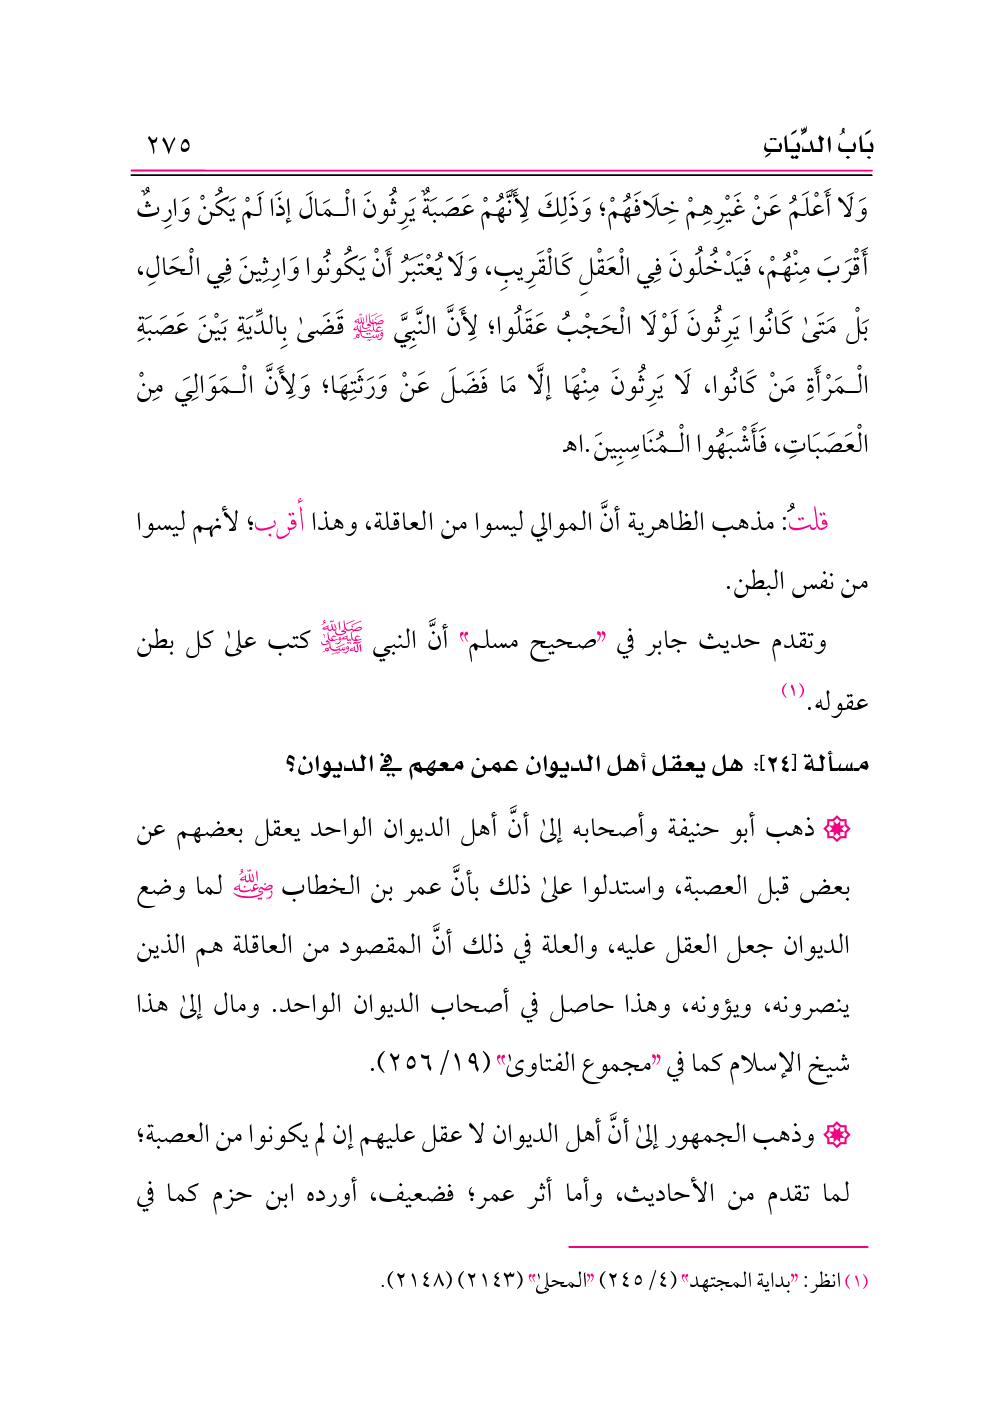 بَابُ الدِّيَاتِ ٢٧٥
وَلَا أَعْلَمُ عَنْ غَيْرِهِمْ خِلَافَهُمْ؛ وَذَلِكَ لِأَنَّهُمْ عَصَبَةٌ يَرِثُونَ الْـمَالَ إذَا لَمْ يَكُنْ وَارِثٌ
أَقْرَبَ مِنْهُمْ، فَيَدْخُلُونَ فِي الْعَقْلِ كَالْقَرِيبِ، وَلَا يُعْتَبَرُ أَنْ يَكُونُوا وَارِثِينَ فِي الْحَالِ،
بَلْ مَتَىٰ كَانُوا يَرِثُونَ لَوْلَا الْحَجْبُ عَقَلُوا؛ لِأَنَّ النَّبِيَّ ﷺ قَضَىٰ بِالدِّيَةِ بَيْنَ عَصَبَةِ
الْـمَرْأَةِ مَنْ كَانُوا، لَا يَرِثُونَ مِنْهَا إلَّا مَا فَضَلَ عَنْ وَرَثَتِهَا؛ وَلِأَنَّ الْـمَوَالِيَ مِنْ
الْعَصَبَاتِ، فَأَشْبَهُوا الْـمُنَاسِبِينَ.اهـ
قلتُ: مذهب الظاهرية أنَّ الموالي ليسوا من العاقلة، وهذا أقرب؛ لأنهم ليسوا
من نفس البطن.
وتقدم حديث جابر في "صحيح مسلم" أنَّ النبي ﷺ كتب علىٰ كل بطن
عقوله.(١)
مسألة [٢٤]: هل يعقل أهل الديوان عمن معهم في الديوان؟
ذهب أبو حنيفة وأصحابه إلىٰ أنَّ أهل الديوان الواحد يعقل بعضهم عن
بعض قبل العصبة، واستدلوا علىٰ ذلك بأنَّ عمر بن الخطاب رضي الله عنه لما وضع
الديوان جعل العقل عليه، والعلة في ذلك أنَّ المقصود من العاقلة هم الذين
ينصرونه، ويؤونه، وهذا حاصل في أصحاب الديوان الواحد. ومال إلىٰ هذا
شيخ الإسلام كما في "مجموع الفتاوىٰ" (١٩/ ٢٥٦).
وذهب الجمهور إلىٰ أنَّ أهل الديوان لا عقل عليهم إن لم يكونوا من العصبة؛
لما تقدم من الأحاديث، وأما أثر عمر؛ فضعيف، أورده ابن حزم كما في
(١) انظر: "بداية المجتهد" (٤/ ٢٤٥) "المحلىٰ" (٢١٤٣) (٢١٤٨).